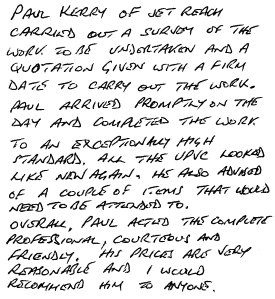 PAUL KERRY OF JET REACH
CARRIED OUT A SURVEY OF THE
WORK TO BE UNDERTAKEN AND A
QUOTATION GIVEN WITH A FIRM
DATE TO CARRY OUT THE WORK.
PAUL ARRIVED PROMPTLY ON THE
DAY AND COMPLETED THE WORK
TO AN EXCEPTIONALLY HIGH
STANDARD. ALL THE UPVC LOOKED
LIKE NEW AGAIN. HE ALSO ADVISED
OF A COUPLE OF ITEMS THAT WOULD
NEED TO BE ATTENDED TO.
OVERALL, PAUL ACTED THE COMPLETE
PROFESSIONAL, COURTEOUS AND
FRIENDLY. HIS PRICES ARE VERY
REASONABLE AND I WOULD
RECOMMEND HIM TO ANYONE.